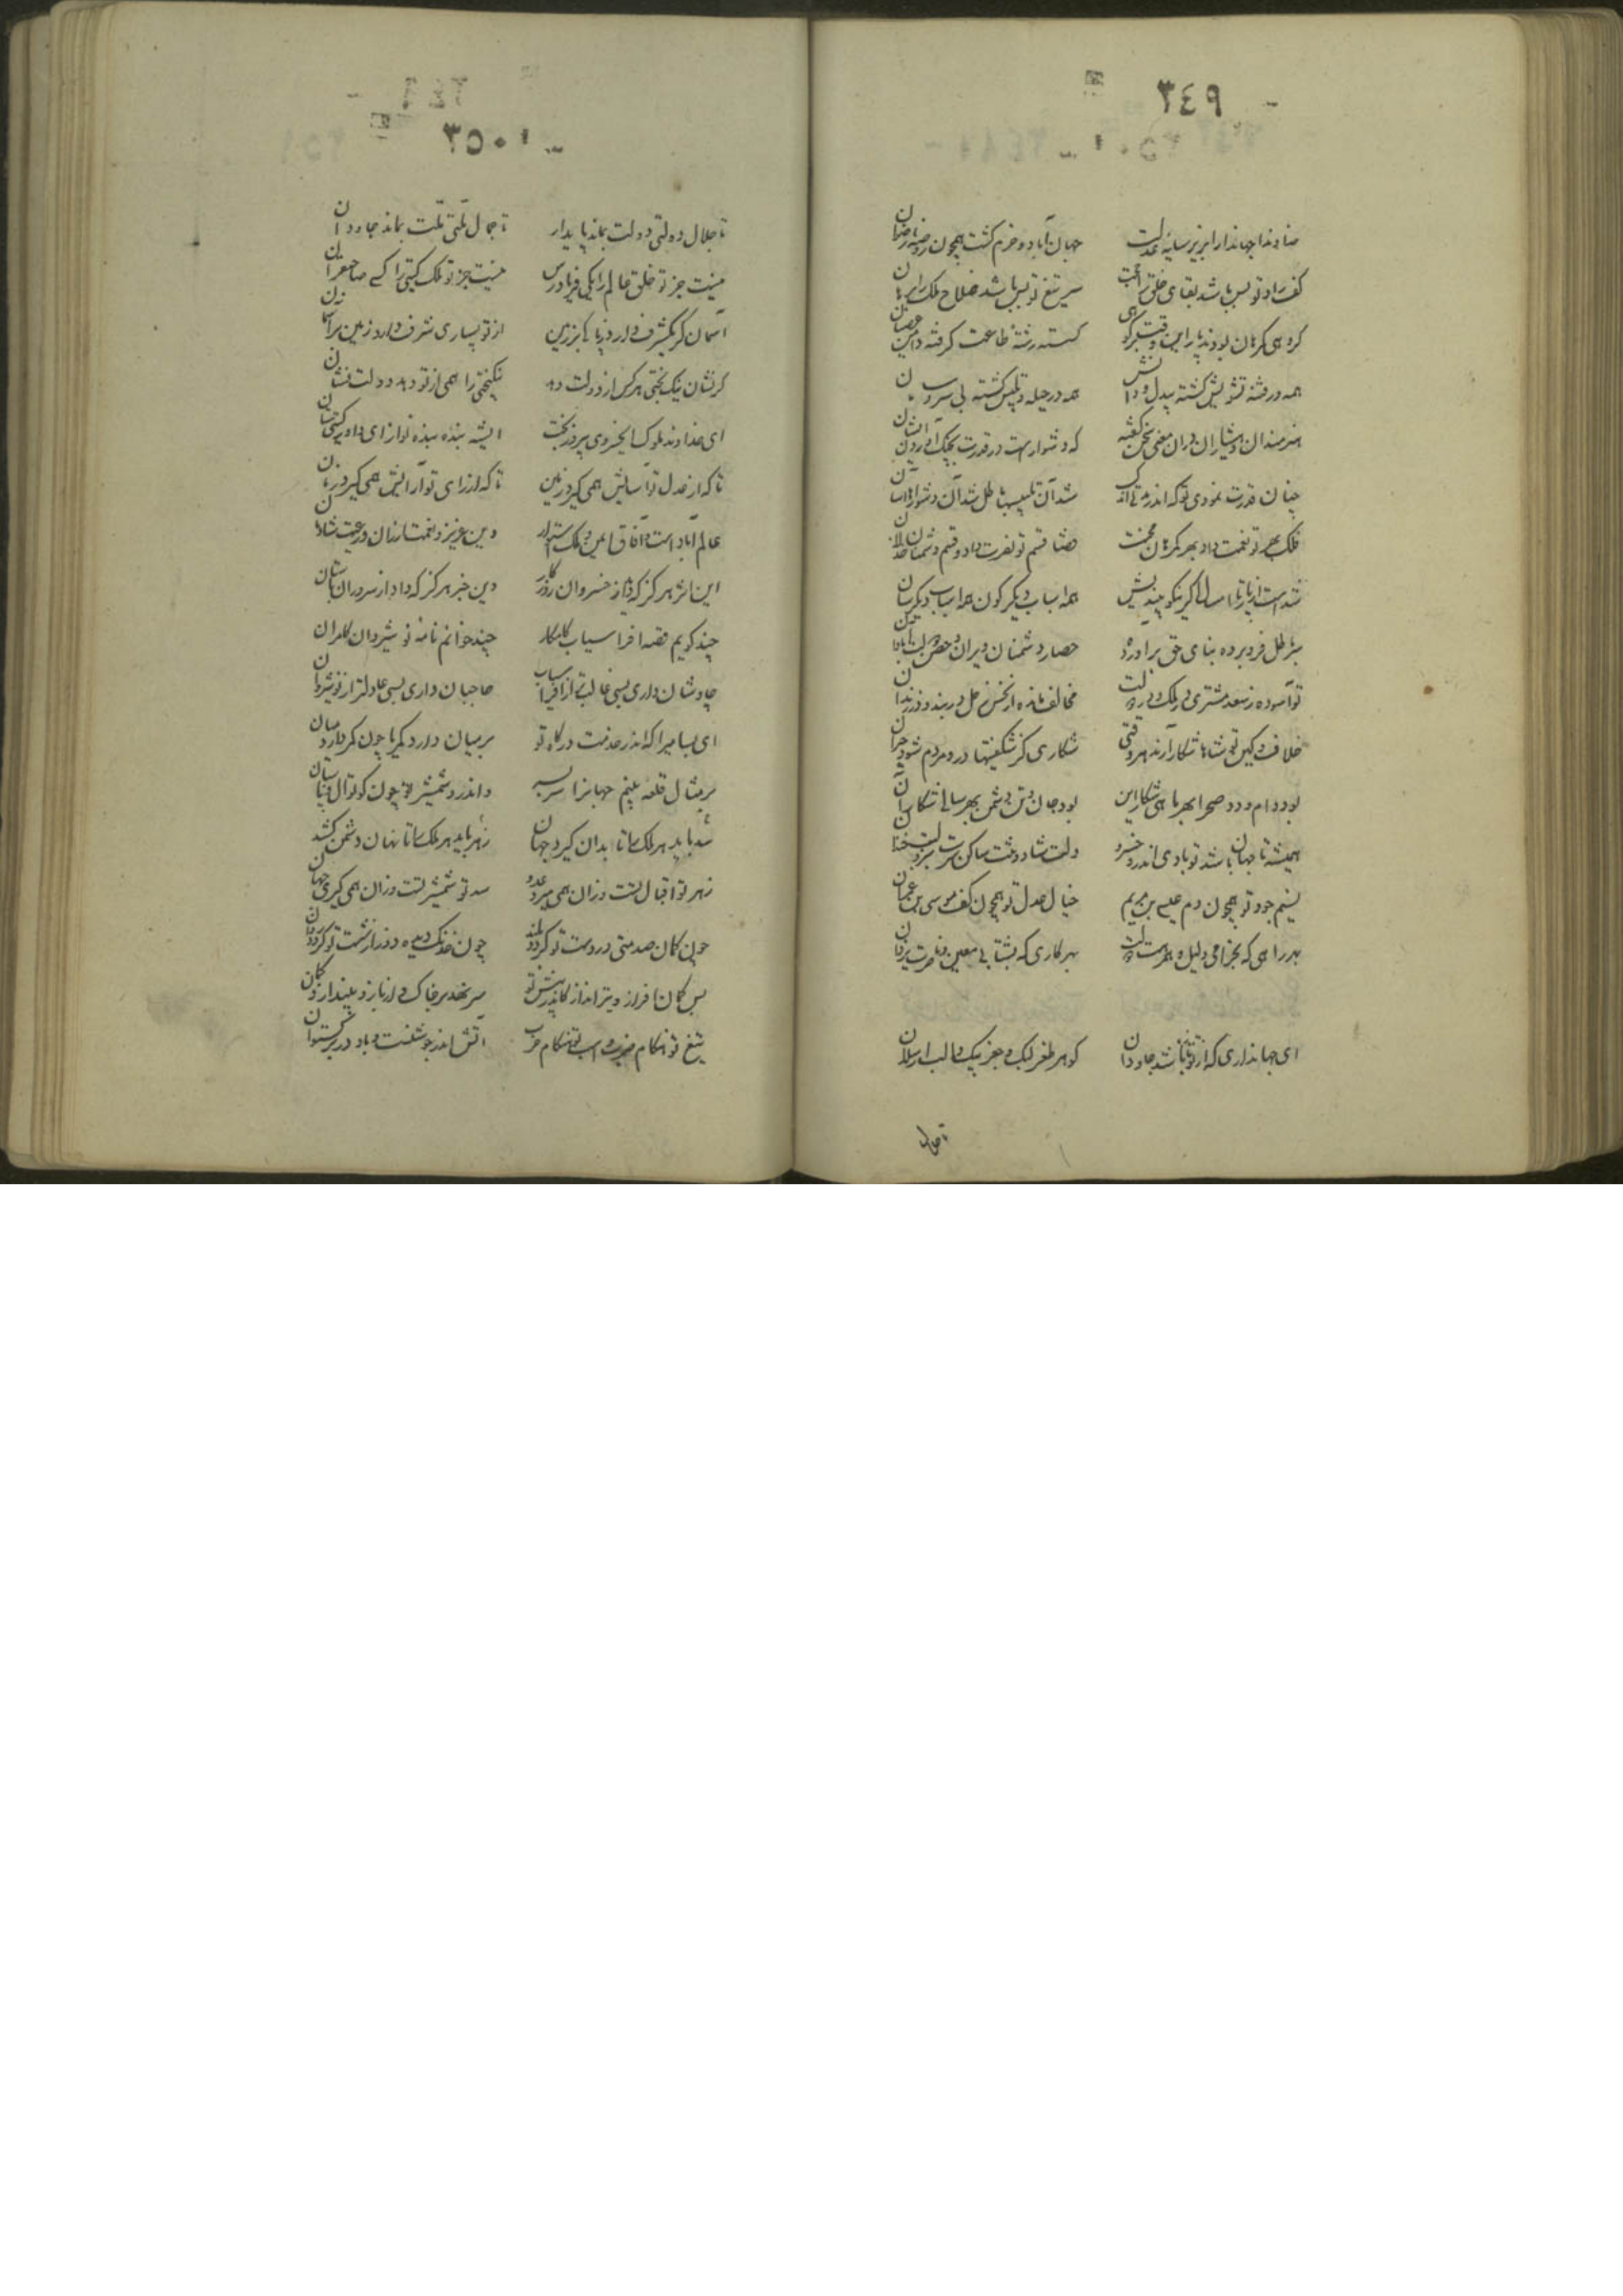 ٣٤٩
خداوندا جهاندارا بزیر سایه عدلت جهان آباد و خرم گشت همچون روضه رضوان
کف راد تو بس باشد بقای خلق را حجت سر تیغ تو بس باشد صلاح ملک را برهان
گروهی کز میان بودند گسسته رشته طاعت گرفته دامن عصیان
همه در فتنه و تشویش گشته بیدل و دانش همه در حیله و تلبیس گشته بی سر و سامان
هنرمندان و هشیاران در آن معنی سخن گفته که دشوارست در قدرت بچنگ آوردن ایشان
چنان قدرت نمودی تو که اندر مدتی اندک شد آن تلبیسها باطل شد آن دشوارها آسان
فلک بهر تو نعمت داد و بهر محنت قضا قسم تو نصرت داد و قسم دشمنان خذلان
شدست از پار تا امسال اگر نیکو بیندیشی همه اسباب دیگرگون همه احباب دیگرسان
بنا باطل فرو برده بنای حق برآورده حصار دشمنان ویران و حصن دولت آبادان
تو آسوده ز سعد مشتری در ملک و در دولت مخالف مانده از نحس زحل در بند و در زندان
خلاف شاهان شکار آرند هر وقتی شکاری کز شگفتیها درو مردم شود حیران
بود دام و دد صحرا بهر ماهی شکار این بود جان و تن دشمن بهر سالی شکار آن
همیشه تا جهان باشد تو بادی اندرو خسرو دلت شاد و تنت ساکن سرت سبز و لبت خندان
نسیم جود تو همچون دم عیسی بن مریم خیال عدل تو همچون کف موسی بن عمران
بهر راهی که بخرامی دلیل و همرهت دولت بهر کاری که بشتابی معین و ناصرت یزدان
ای جهانداری که از تو تازه باشد جاودان گوهر طغرلبک و جغربیک و الب ارسلان
تا جلال
٣٥٠
تا جلال دولتی دولت بماند پایدار تا جمال ملتی ملت بماند جاودان
نیست جز تو خلق عالم را یکی فریادرس نیست جز تو ملک گیتی را کسی صاحبقران
آسمان گر یک شرف دارد زیبا بر زمین از تو بسیاری شرف دارد زمین بر آسمان
گر نشان نیک بختی هر کس از دولت دهد نیکبختی را همی از تو دهد دولت نشان
ای خداوند ملوک ای خسروی پیروز بخت ای شه بنده نواز ای داور گیتی ستان
تا که از عدل تو آسایش همی گیرد زمین تا که از رای تو آرایش همی گیرد زمان
عالم آبادست و آفاق ایمن و ملک استوار دین عزیز و نعمت ارزان و رعیت شادمان
این اثر هرگز که دید از خسروان روزگار وین خبر هرگز که داد از سروران باستان
چند گویم قصه افراسیاب کامکار چند خوانم نامه نوشیروان کامران
چاوشان داری بسی غالبتر از افراسیاب حاجبان داری بسی عادلتر از نوشیروان
ای بسا میرا که اندر خدمت درگاه تو بر میان دارد کمر یا چون کمر دارد میان
بر مثال قلعه بینم جهانرا سربسر واندرو شمشیر تو چون کوتوال و پاسبان
سد باید هر ملک را تا بدان گیرد جهان زهر باید هر ملک را تا نهان دشمن کشد
زهر تو اقبال تست و زان همی میرد عدو سد تو شمشیر تست و زان همی گیری جهان
چون کمان صد منی در دست تو گردد بلند چون خدنگ دیده دوز از شست تو گردد روان
بس کمان افراز و تیرانداز کاندر پیش تو سر نهد بر خاک و از بازو بیندازد کمان
تیغ تو هنگام ضرب و اسب تو هنگام حرب آتش اندر جوشنست و باد در برگستوان